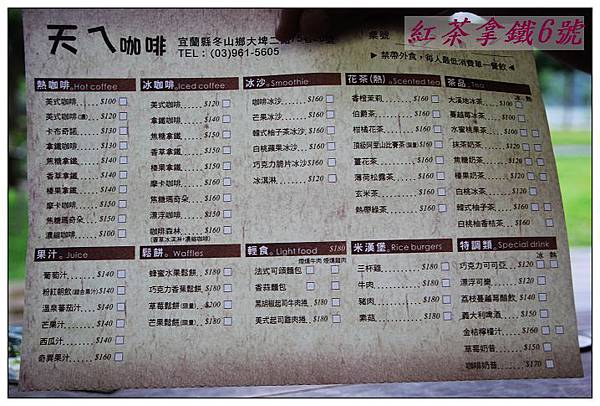 紅茶拿鐵6號
天ㄟ咖啡
宜蘭縣冬山鄉大埤二路
TEL：(03)961-5605
桌號
▶禁帶外食，每人最低消費單一餐飲◀
熱咖啡。Hot coffee
美式咖啡......$100
美式咖啡(濃)......$120
卡布奇諾......$130
拿鐵咖啡......$130
焦糖拿鐵......$140
香草拿鐵......$140
榛果拿鐵......$140
摩卡咖啡......$150
焦糖瑪奇朵......$150
濃縮咖啡......$100
冰咖啡。Iced coffee
美式咖啡......$120
拿鐵咖啡......$140
焦糖拿鐵......$150
香草拿鐵......$150
榛果拿鐵......$150
摩卡咖啡......$160
焦糖瑪奇朵......$160
漂浮咖啡......$150
咖啡森林......$160
(香草冰淇淋+濃縮咖啡)
冰沙。Smoothie
咖啡冰沙......$160
芒果冰沙......$160
韓式柚子茶冰沙......$160
白桃蘋果冰沙......$160
巧克力脆片冰沙......$160
冰淇淋......$120
花茶(熱)。Scented tea
香橙茉莉......$160
伯爵茶......$160
柑橘花茶......$160
頂級阿里山比賽茶(限量)......$160
薑花茶......$160
薄荷松露茶......$160
玄米茶......$160
熱帶綠茶......$160
茶品。Tea
冰 熱
大溪地冰茶......$160
蔓越莓冰茶......$160
水蜜桃果茶......$160
抹茶奶茶......$120
焦糖奶茶......$120
榛果奶茶......$120
白桃冰茶......$160
韓式柚子茶......$160
白桃柚香桔茶......$160
果汁。Juice
葡萄汁......$140
粉紅佩飲(綜合果汁)......$160
溫泉蕃茄汁......$140
芒果汁......$140
西瓜汁......$140
奇異果汁......$160
鬆餅。Waffles
蜂蜜水果鬆餅......$180
巧克力香蕉鬆餅......$180
草莓鬆餅(限量)......$200
芒果鬆餅(限量)......$180
輕食。Light food $180
煙燻牛肉 煙燻雞肉
法式可頌麵包
香蒜麵包
黑胡椒起司牛肉捲......$180
美式起司雞肉捲......$180
米漢堡。Rice burgers
三杯雞......$180
牛肉......$180
豬肉......$180
素菇......$180
特調類。Special drink
冰 熱
巧克力可可亞......$120
漂浮可樂......$120
荔枝蔓越莓醋飲......$140
義大利啤酒......$150
金桔檸檬汁......$160
草莓奶昔......$150
咖啡奶昔......$170